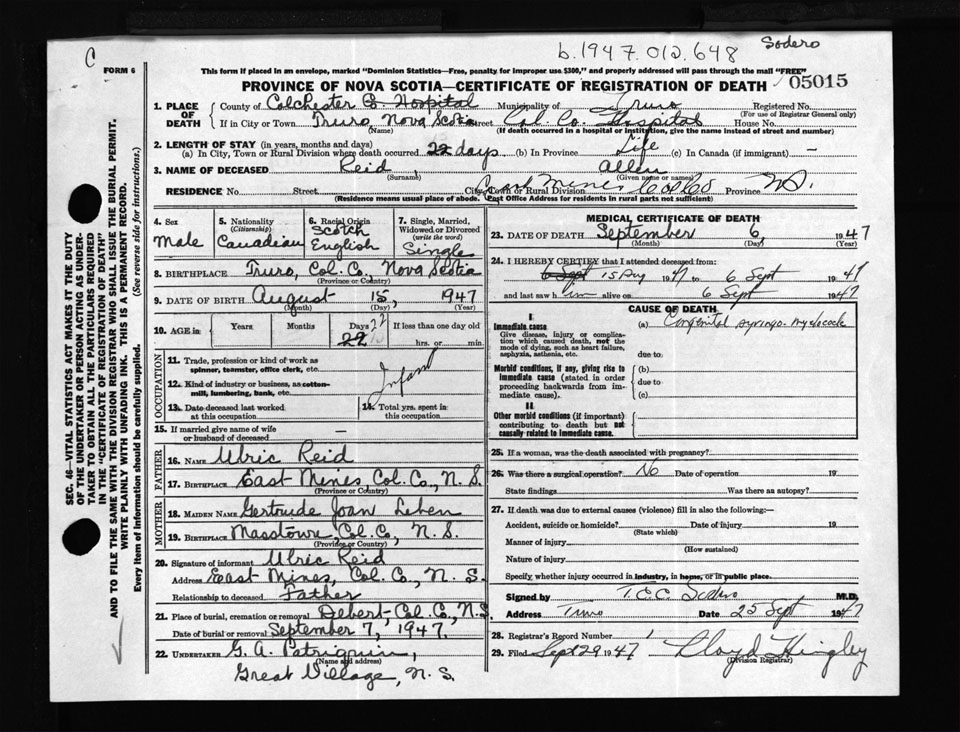 b.1947.012.648 Sodero
C
FORM 6
This form if placed in an envelope, marked "Dominion Statistics—Free, penalty for improper use $300," and properly addressed will pass through the mail "FREE"
PROVINCE OF NOVA SCOTIA—CERTIFICATE OF REGISTRATION OF DEATH
05015
SEC. 46—VITAL STATISTICS ACT MAKES IT THE DUTY
OF THE UNDERTAKER OR PERSON ACTING AS UNDER-
TAKER TO OBTAIN ALL THE PARTICULARS REQUIRED
IN THE "CERTIFICATE OF REGISTRATION OF DEATH"
AND TO FILE THE SAME WITH THE DIVISION REGISTRAR WHO SHALL ISSUE THE BURIAL PERMIT.
WRITE PLAINLY WITH UNFADING INK. THIS IS A PERMANENT RECORD.
Every item of information should be carefully supplied. (See reverse side for instructions.)
1. PLACE OF DEATH
County of Colchester Co. Hospital Municipality of Truro Registered No.
(For use of Registrar General only)
If in City or Town Truro, Nova Scotia Street Col. Co. Hospital House No.
(Name) (If death occurred in a hospital or institution, give the name instead of street and number)
2. LENGTH OF STAY (in years, months and days)
(a) In City, Town or Rural Division where death occurred 22 days (b) In Province Life (c) In Canada (if immigrant) —
3. NAME OF DECEASED Reid, Allen
(Surname) (Given name or names)
RESIDENCE No. Street City, Town or Rural Division East Mines Col Co Province N.S.
(Residence means usual place of abode. Post Office Address for residents in rural parts not sufficient)
4. Sex Male
5. Nationality (Citizenship) Canadian
6. Racial Origin Scotch English
7. Single, Married, Widowed or Divorced (write the word) Single
8. BIRTHPLACE Truro, Col. Co., Nova Scotia
(Province or Country)
9. DATE OF BIRTH August 15, 1947
(Month) (Day) (Year)
10. AGE in Years Months Days 22 If less than one day old
22 hrs. or min.
OCCUPATION
11. Trade, profession or kind of work as
spinner, teamster, office clerk, etc.
12. Kind of industry or business, as cotton-
mill, lumbering, bank, etc.
Infant
13. Date deceased last worked
at this occupation
14. Total yrs. spent in
this occupation
15. If married give name of wife
or husband of deceased —
FATHER
16. NAME Ulric Reid
17. BIRTHPLACE East Mines, Col. Co., N. S.
(Province or Country)
MOTHER
18. MAIDEN NAME Gertrude Joan
19. BIRTHPLACE Masstown, Col. Co., N. S.
(Province or Country)
20. Signature of informant Ulric Reid
Address East Mines, Col. Co., N. S.
Relationship to deceased Father
21. Place of burial, cremation or removal Debert, Col. Co., N.S.
Date of burial or removal September 7, 1947.
22. UNDERTAKER G. A. Patriquin,
(Name and address)
Great Village, N. S.
MEDICAL CERTIFICATE OF DEATH
23. DATE OF DEATH September 6, 1947
(Month) (Day) (Year)
24. I HEREBY CERTIFY that I attended deceased from:
6 Sept 15 Aug 1947 to 6 Sept 1947
and last saw him alive on 6 Sept 1947
CAUSE OF DEATH
I
Immediate cause
Give disease, injury or complica-
tion which caused death, not the
mode of dying, such as heart failure,
asphyxia, asthenia, etc.
(a) Congenital syringo-myelocele
due to
Morbid conditions, if any, giving rise to
immediate cause (stated in order
proceeding backwards from im-
mediate cause).
(b)
due to
(c)
II
Other morbid conditions (if important)
contributing to death but not
causally related to immediate cause.
25. If a woman, was the death associated with pregnancy?
26. Was there a surgical operation? No Date of operation 19
State findings Was there an autopsy?
27. If death was due to external causes (violence) fill in also the following:—
Accident, suicide or homicide? Date of injury 19
(State which)
Manner of injury
(How sustained)
Nature of injury
Specify whether injury occurred in industry, in home, or in public place.
Signed by T.C.C. Sodero M.D.
Address Truro Date 25 Sept 1947
28. Registrar's Record Number 1
29. Filed Sept 29 1947 Lloyd Hingley
(Division Registrar)